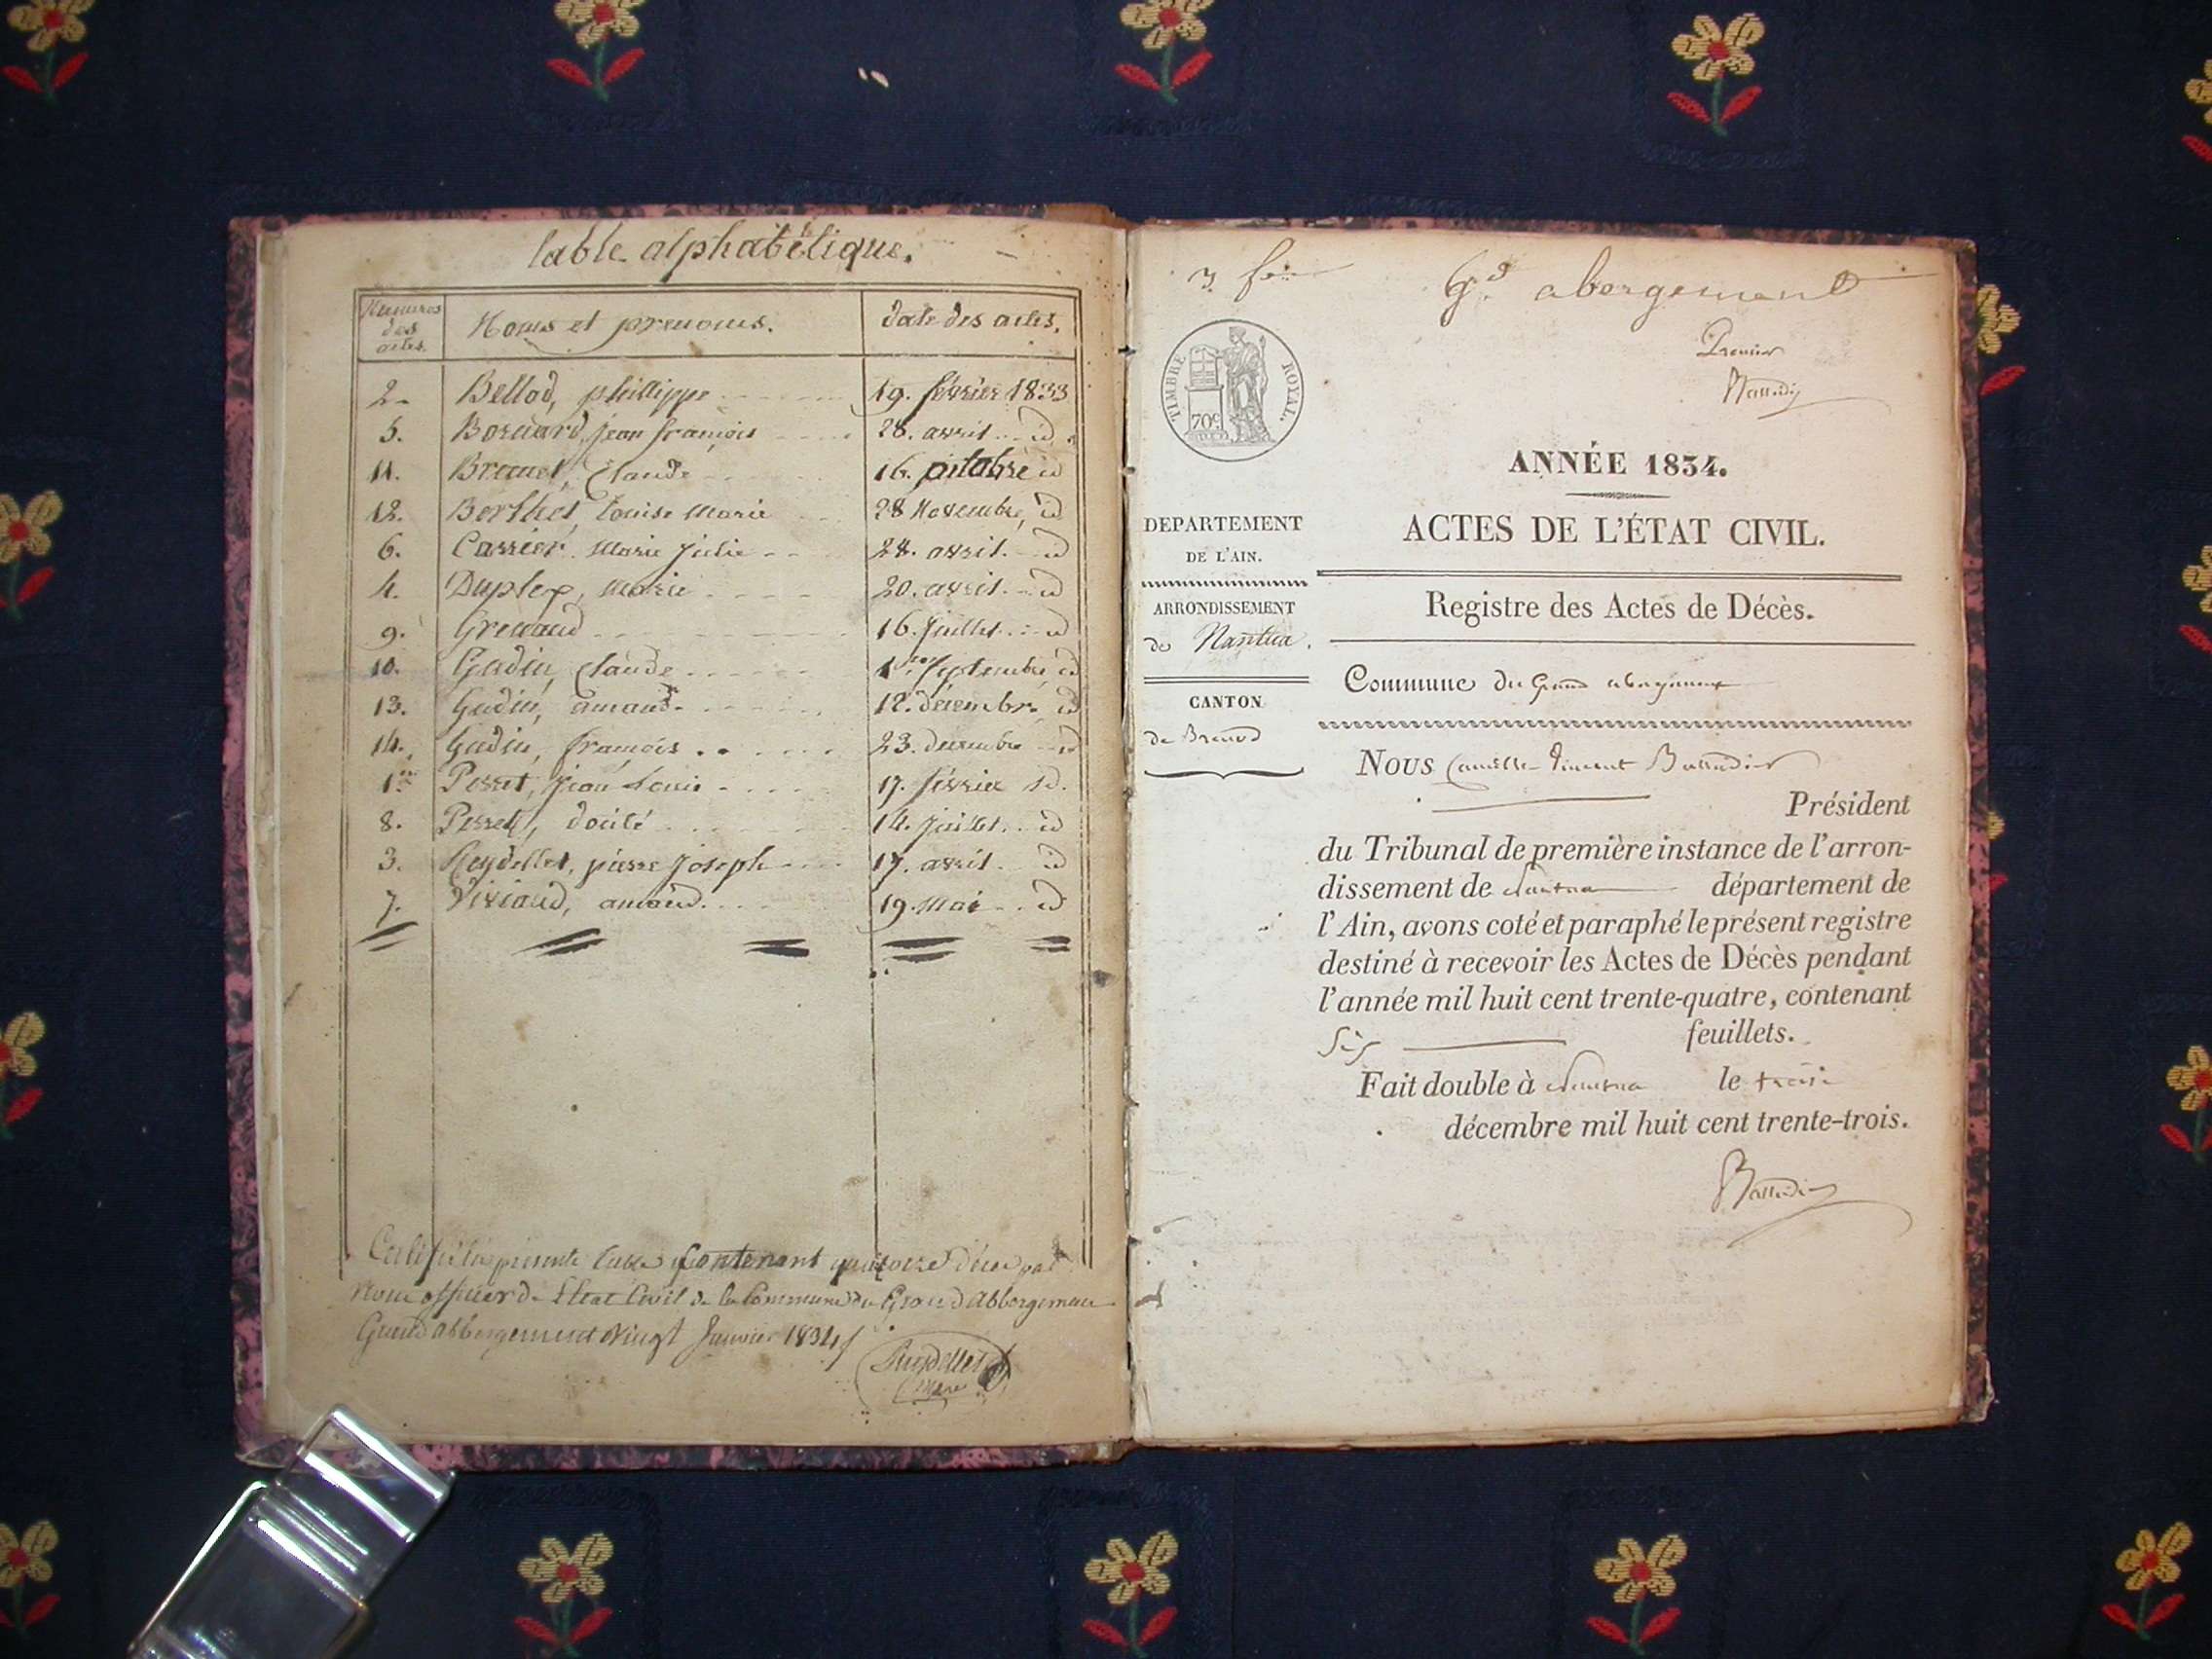 table alphabétique.
Numeros des actes. Noms et prenoms. date des actes.
2. Bellod, phillippe 19. février 1833
5. jean françois 28. avril id
11. Claude 16. octobre id
12. Berthet, Louise Marie 28 Novembre, id
6. Carrier Marie Julie 24. avril. id
4. Duplex, Marie 20. avril. id
9. Grenaud 16. Juillet. id
10. Gudin, Claude 1er septembre id
13. Gudin, amand 12. décembre id
14. Gudin, françois 23. décembre id
1er Perret, Jean Louis 17. février id.
8. Perret, 14. juillet. id
3. Reydellet, pierre Joseph 17. avril. id
7. Viviand, amand. 19. Mai id
présente table contenant quatorze décès par
Nous officier de l'Etat Civil de la Commune du Grand Abbergement
Grand abbergement Vingt Janvier 1834
Reydellet
Maire
3
Gd abergement
Premier
TIMBRE ROYAL.
70c
ANNÉE 1834.
ACTES DE L'ÉTAT CIVIL.
DEPARTEMENT
DE L'AIN.
ARRONDISSEMENT
de Nantua.
CANTON
de Brenod
Registre des Actes de Décès.
Commune du Grand abergement
Nous Camille Vincent
Président
du Tribunal de première instance de l'arron-
dissement de Nantua département de
l'Ain, avons coté et paraphé le présent registre
destiné à recevoir les Actes de Décès pendant
l'année mil huit cent trente-quatre, contenant
Six feuillets.
Fait double à Nantua le trois
décembre mil huit cent trente-trois.